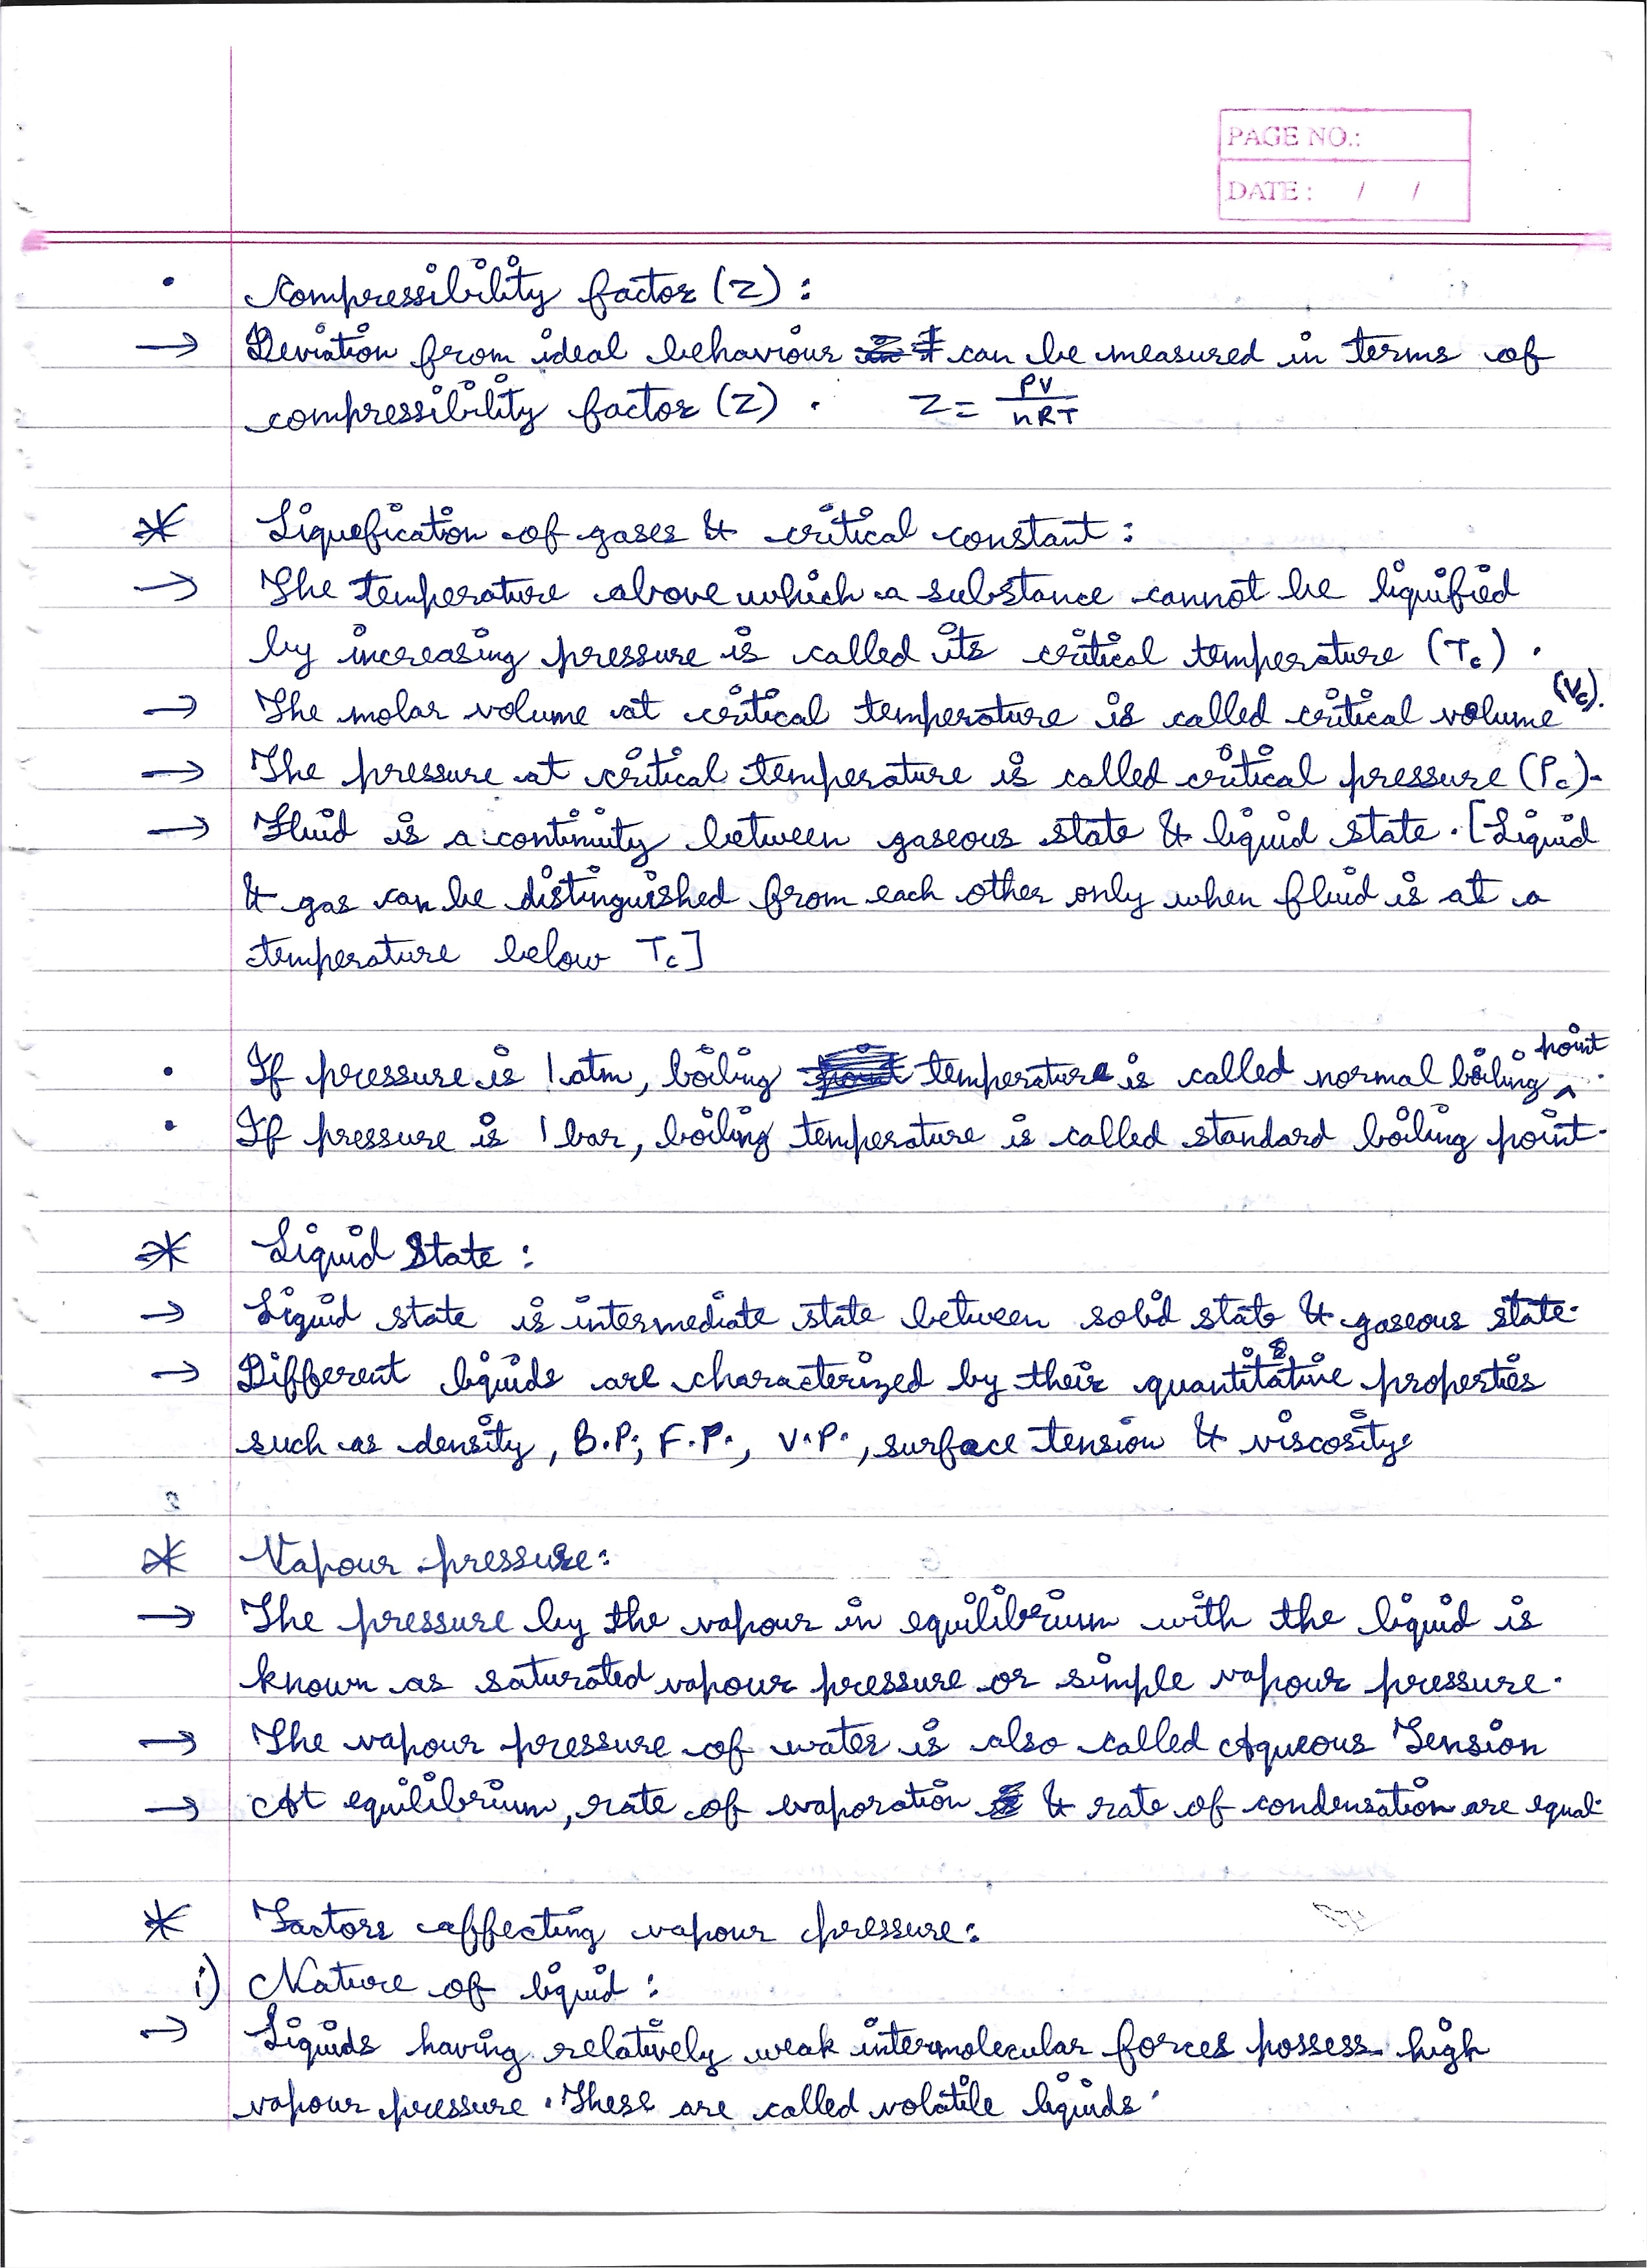 PAGE NO.:
DATE: / /
• Compressibility factor (Z) :
→ Deviation from ideal behaviour can be measured in terms of
compressibility factor (Z) . Z = PV/nRT
* Liquefication of gases & critical constant :
→ The temperature above which a substance cannot be liquified
by increasing pressure is called its critical temperature (Tc) .
→ The molar volume at critical temperature is called critical volume (Vc).
→ The pressure at critical temperature is called critical pressure (Pc).
→ Fluid is a continuity between gaseous state & liquid state. [Liquid
& gas can be distinguished from each other only when fluid is at a
temperature below Tc]
• If pressure is 1 atm, boiling temperature is called normal boiling point.
• If pressure is 1 bar, boiling temperature is called standard boiling point.
* Liquid State :
→ Liquid state is intermediate state between solid state & gaseous state.
→ Different liquids are characterized by their quantitative properties
such as density, B.P., F.P., V.P., surface tension & viscosity.
* Vapour pressure:
→ The pressure by the vapour in equilibrium with the liquid is
known as saturated vapour pressure or simple vapour pressure.
→ The vapour pressure of water is also called Aqueous Tension
→ At equilibrium, rate of evaporation & rate of condensation are equal.
* Factors affecting vapour pressure:
i) Nature of liquid :
→ Liquids having relatively weak intermolecular forces possess high
vapour pressure. These are called volatile liquids.